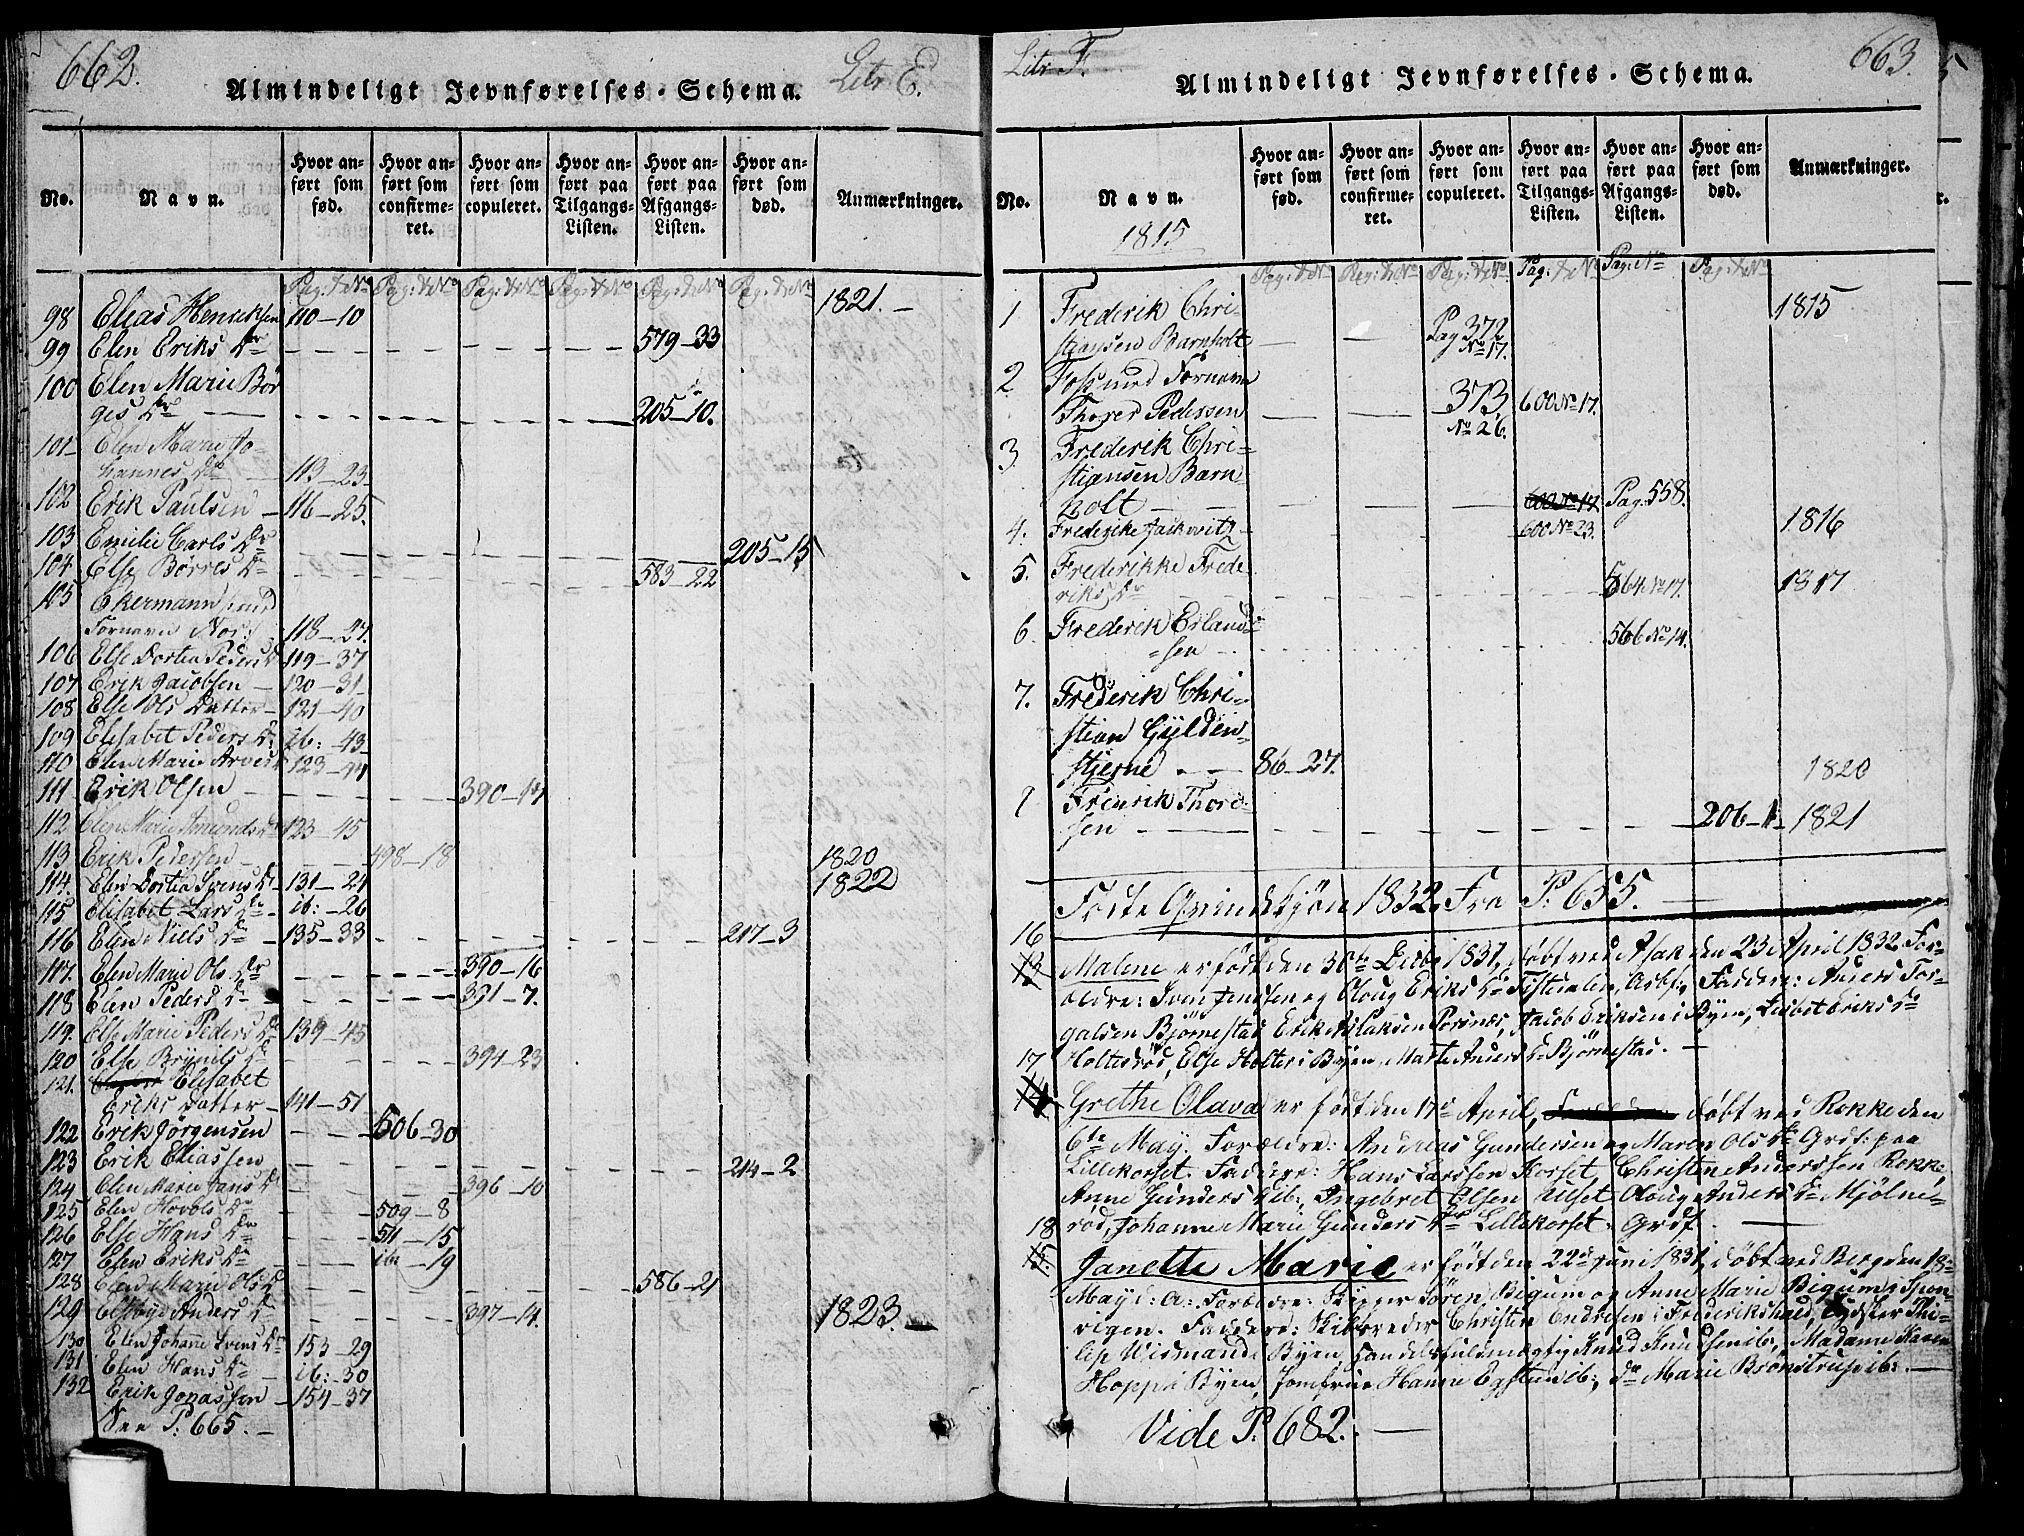 662.
Almindeligt Jevnførelses-Schema. Litr E.
No. Navn. Hvor anført som fød. Hvor anført som confirmeret. Hvor anført som copuleret. Hvor anført paa Tilgangs-Listen. Hvor anført paa Afgangs-Listen. Hvor anført som død. Anmærkninger.
Pag: & No Pag: & No Pag: & No Pag: & No Pag: & No Pag: & No
98 Elias Henriksen 110-10 1821.-
99 Elen Eriks Dr 579-33
100 Elen Marie Bør
ges Dr 205-10.
101 Elen Marie Jo-
hannes Dr 113-23
102 Erik Paulsen 116-25.
103 Emilie Carls Dr 205-15
104 Else Børres Dr 583-22
105 Ekermann
Fornavn Nos: 118-27.
106 Else Dortea Peders D 119-37
107 Erik Jacobsen 120-31
108 Else Ols Datter 121-40
109 Elisabet Peders Dr ib: -43
110 Elen Marie Arves 123-44
111 Erik Olsen 390-14
112 Elen Marie Amunds Dr 123-45
113 Erik Pedersen 498-18 1820
114. Elen Dortea Svens Dr 131-24 1822
115 Elisabet Lars Dr ib: -26
116 Elen Niels Dr 135-33 217-3
117. Elen Marie Ols Dr 390-16
118 Elen Peders Dr 391-7.
119. Else Marie Peders Dr 139-45
120 Else Brynils Dr 394-23
121. Elisabet
Eriks Datter 141-51
122 Erik Jörgensen 506-30
123 Erik Eliassen 214-2
124 Elen Marie Jans Dr 396-10
125 Elen Hovols Dr 509-8
126 Else Hans Dr 511-15
127 Elen Eriks Dr ib: -19
128 Elen Marie Ols Dr 586-21
129 Anders Dr 397-14. 1823.-
130 Elen Johanne Svens Dr 153-29
131 Elen Hans Dr ib: -30
132 Erik Jonassen 154-37
See P: 665.-
Litr F. 663.
Almindeligt Jevnførelses-Schema.
No. Navn. Hvor anført som fød. Hvor anført som confirmeret. Hvor anført som copuleret. Hvor anført paa Tilgangs-Listen. Hvor anført paa Afgangs-Listen. Hvor anført som død. Anmærkninger.
1815
Pag: & No Pag: & No Pag: & No Pag: & No Pag: No Pag: & No
1 Frederik Chri- 1815
stiansen Barnholt Pag 372 No 17.
2 Foss med Fornavn
Thorer Pedersen 373, No 26. 600 No 17.
3 Frederik Chri-
stiansen Barn-
holt 600 No 17 Pag. 558.
4. Frederike 600 No 23. 1816
5. Frederikke Frede
riks Dr 564 No 17. 1817
6. Frederik Erland-
sen 566 No 14.
7. Frederik Chri-
stian Gylden-
stjerne 86-27. 1820
Fredrik Thord-
sen 206-1 1821
Forte Grimdskjön 1832. Fra P. 655.
16
13 Malene er født den 30te Decbr 1831, döbt ved Asak den 23 April 1832 For-
ældre: Sven Jensen og Oloug Eriks Dr Tistedalen, Arbf: Faddere: Anders Tor-
galsen Björnestad Erik Aslaksen Porsnes, Jacob Eriksen i Byen, Lisbet Eriks Dr
17 Holtesröd, Else Holter i Byen, Marte Anders Dr Björnestad.
14 Grethe Olava er född den 17de April, döbt ved Rokke den
6te May. Forældre: Andreas Gundersen og Maren Ols Dr Grdf: paa
Lillekorset. Faddere: Hans Larssen Korset, Christen Anderssen Rokke,
Anne Gunders D ib: Ingebret Olsen Ulset Oloug Anders Dr Mjölne-
18 röd, Johanne Marie Gunders Dr Lillekorset Grdf
15. Janette Marie er född den 22de Juni 1831, döbt ved Berg den 18de
May i: a: Forældre: Skipper Sören Bigum og Anne Marie Bigum, Spon-
vigen. Faddere: Skibsreder Christen Endresen i Frederikshald, Thi-
lip Wismand Byen Handelsfuldmægtig Knud Knudsen ib:, Madame Karen
Hopp i Byen, Jomfrue Hanne Egsten ib:, Dr Marie Brönstrup ib:
Vide P. 682.-